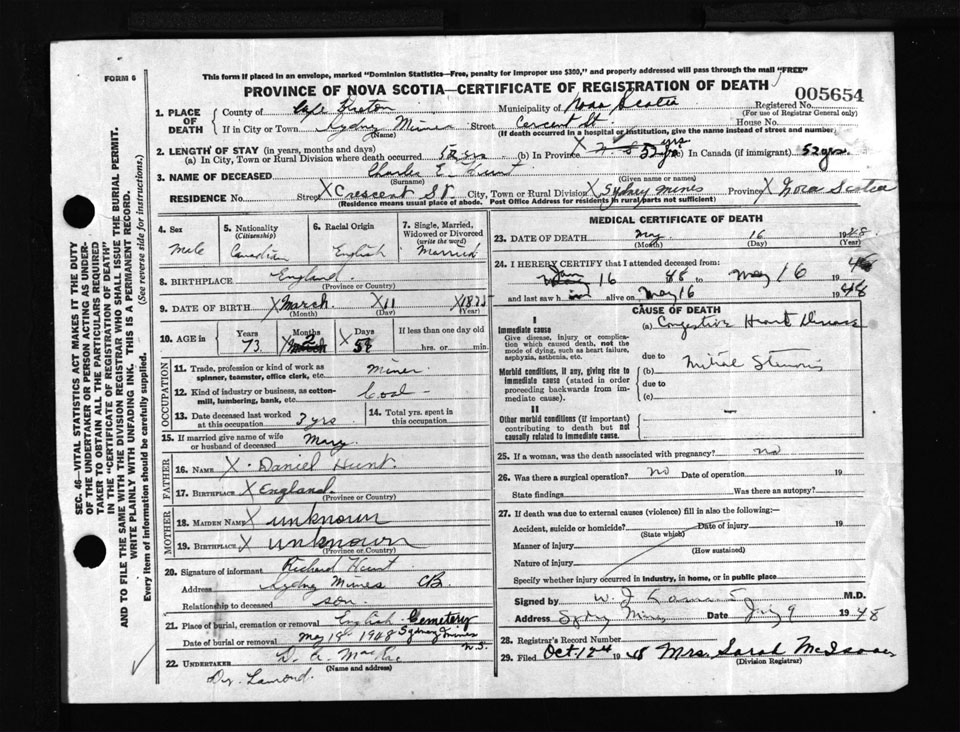 FORM 6
This form if placed in an envelope, marked "Dominion Statistics—Free, penalty for improper use $300," and properly addressed will pass through the mail "FREE"
PROVINCE OF NOVA SCOTIA—CERTIFICATE OF REGISTRATION OF DEATH
005654
1. PLACE OF DEATH
County of Cape Breton Municipality of Nova Scotia Registered No.
(For use of Registrar General only)
If in City or Town Sydney Mines Street Cercent St. House No.
(Name) (If death occurred in a hospital or institution, give the name instead of street and number)
2. LENGTH OF STAY (in years, months and days)
(a) In City, Town or Rural Division where death occurred 52 yrs (b) In Province N. S 52 yrs (c) In Canada (if immigrant) 52 yrs.
3. NAME OF DECEASED Charles E. Hunt
(Surname) (Given name or names)
RESIDENCE No. Street X Crescent St City, Town or Rural Division X Sydney Mines Province X Nova Scotia
(Residence means usual place of abode. Post Office Address for residents in rural parts not sufficient)
4. Sex
Male
5. Nationality (Citizenship)
Canadian
6. Racial Origin
English
7. Single, Married, Widowed or Divorced (write the word)
Married
8. BIRTHPLACE England
(Province or Country)
9. DATE OF BIRTH X March X 11 X 1875
(Month) (Day) (Year)
10. AGE in Years 73 Months 2 Days 5 If less than one day hrs. or min.
OCCUPATION
11. Trade, profession or kind of work as spinner, teamster, office clerk, etc. Miner
12. Kind of industry or business, as cotton-mill, lumbering, bank, etc. Coal
13. Date deceased last worked at this occupation 3 yrs.
14. Total yrs. spent in this occupation
15. If married give name of wife or husband of deceased Mary
FATHER
16. NAME X Daniel Hunt.
17. BIRTHPLACE X England.
(Province or Country)
MOTHER
18. MAIDEN NAME X unknown
19. BIRTHPLACE X unknown
(Province or Country)
20. Signature of informant Richard Hunt
Address Sydney Mines CB.
Relationship to deceased son.
21. Place of burial, cremation or removal English Cemetery
Date of burial or removal May 18 1948 Sydney Mines N.S.
22. UNDERTAKER D. A.
(Name and address)
MEDICAL CERTIFICATE OF DEATH
23. DATE OF DEATH May 16 1948
(Month) (Day) (Year)
24. I HEREBY CERTIFY that I attended deceased from:
Jan 16 to May 16 1948
and last saw him alive on May 16 1948
CAUSE OF DEATH
I
Immediate cause
Give disease, injury or complication which caused death, not the mode of dying, such as heart failure, asphyxia, asthenia, etc.
(a) Congestive Heart Disease
due to
Morbid conditions, if any, giving rise to immediate cause (stated in order proceeding backwards from immediate cause).
(b) Mitral Stenosis
due to
(c)
II
Other morbid conditions (if important) contributing to death but not causally related to immediate cause.
25. If a woman, was the death associated with pregnancy? no
26. Was there a surgical operation? no Date of operation 19
State findings Was there an autopsy?
27. If death was due to external causes (violence) fill in also the following:—
Accident, suicide or homicide? Date of injury 19
(State which)
Manner of injury
(How sustained)
Nature of injury
Specify whether injury occurred in industry, in home, or in public place
Signed by M.D.
Address Sydney Mines Date 9 1948
28. Registrar's Record Number
29. Filed Oct. 12th 1948 Mrs. Sarah McIsaac
(Division Registrar)
SEC. 46—VITAL STATISTICS ACT MAKES IT THE DUTY OF THE UNDERTAKER OR PERSON ACTING AS UNDERTAKER TO OBTAIN ALL THE PARTICULARS REQUIRED IN THE "CERTIFICATE OF REGISTRATION OF DEATH" AND TO FILE THE SAME WITH THE DIVISION REGISTRAR WHO SHALL ISSUE THE BURIAL PERMIT.
WRITE PLAINLY WITH UNFADING INK. THIS IS A PERMANENT RECORD.
Every item of information should be carefully supplied. (See reverse side for instructions.)